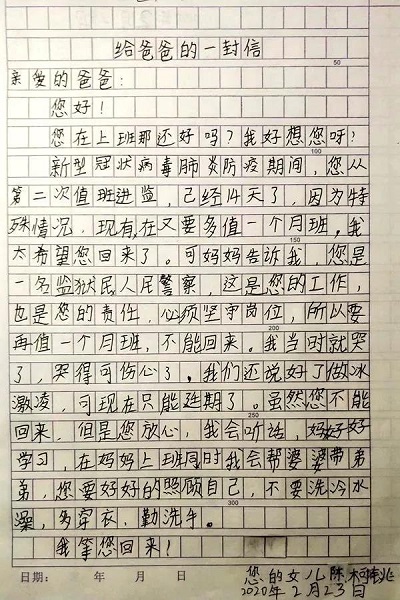 给爸爸的一封信
50
亲爱的爸爸:
您好!
您在上班那还好吗?我好想您呀?
100
新型冠状病毒肺炎防疫期间,您从
第二次值班进监,已经14天了,因为特
殊情况,现在又要多值一个月班,我
150
太希望您回来了。可妈妈告诉我,您是
一名监狱民人民警察,这是您的工作,
也是您的责任,必须坚守岗位,所以要
200
再值一个月班,不能回来。我当时就哭
了,哭得可伤心了。我们还说好了做冰
激凌,可现在只能延期了。虽然您不能
回来,但是您放心,我会听话,好好
250
学习,在妈妈上班同时我会帮婆婆带弟
弟,您要好好的照顾自己,不要洗冷水
澡,多穿衣,勤洗手。
300
我等您回来!
您的女儿陈柯
日期: 年 月 日
2020年2月23日